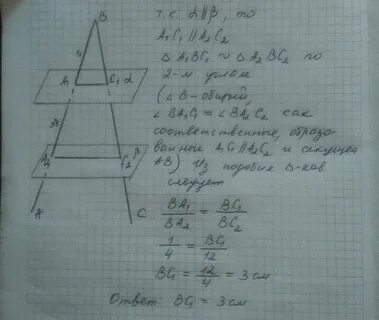 т.к. α∥β, то
A₁C₁∥A₂C₂
Δ A₁BC₁ ∼ Δ A₂BC₂ по
2-м углам
(∠B-общий,
∠BA₁C₁ = ∠BA₂C₂ как
соответственные, образо-
ванные A₁C₁∥A₂C₂ и секущей
AB) Из подобия Δ-ков
следует
BA₁/BA₂ = BC₁/BC₂
1/4 = BC₁/12
BC₁ = 12/4 = 3 см
Ответ: BC₁ = 3 см
B
A₁ C₁ α
A₂ C₂ β
A C